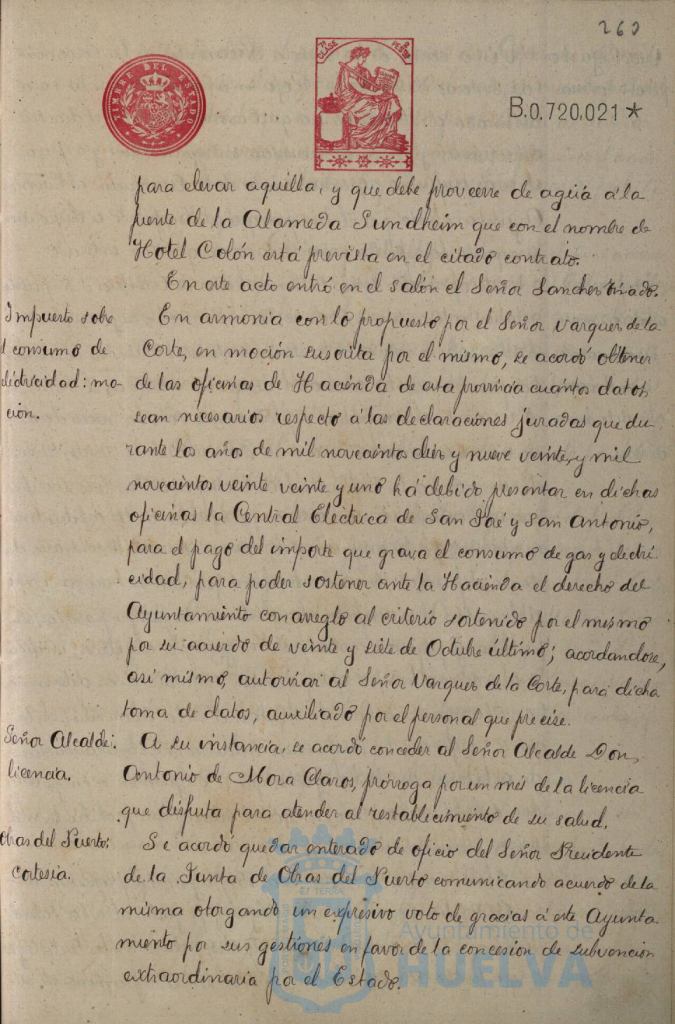 260
TIMBRE DEL ESTADO
7ª CLASE
PESETAS
B.0.720.021*
para elevar aquella, y que debe proveerse de agua á la
fuente de la Alameda Sundheim que con el nombre de
Hotel Colón está prevista en el citado contrato.
En este acto entró en el salón el Señor Sanchez
Impuesto sobre
l consumo de
electricidad: mo-
ción.
En armonia con lo propuesto por el Señor Vazquez de la
Corte, en moción suscrita por el mismo, se acordó obtener
de las oficinas de Hacienda de esta provincia cuántos datos
sean necesarios respecto á las declaraciones juradas que du-
rante los años de mil novecientos diez y nueve veinte, y mil
novecientos veinte veinte y uno há debido presentar en dichas
oficinas la Central Eléctrica de San José y San Antonio,
para el pago del importe que grava el consumo de gas y electri-
cidad, para poder sostener ante la Hacienda el derecho del
Ayuntamiento con arreglo al criterio sostenido por el mismo
por su acuerdo de veinte y siete de Octubre último; acordandose,
asi mismo, autorizar al Señor Vazquez de la Corte, para dicha
toma de datos, auxiliado por el personal que precise.
Señor Alcalde:
licencia.
A su instancia, se acordó conceder al Señor Alcalde Don
Antonio de Mora Claros, prórroga por un mes de la licencia
que disfruta para atender al restablecimiento de su salud.
Obras del Puerto:
cortesia.
Se acordó quedar enterado de oficio del Señor Presidente
de la Junta de Obras del Puerto comunicando acuerdo de la
misma otorgando un expresivo voto de gracias á este Ayunta-
miento por sus gestiones en favor de la concesion de subvencion
extraordinaria por el Estado.
Ayuntamiento de
HUELVA